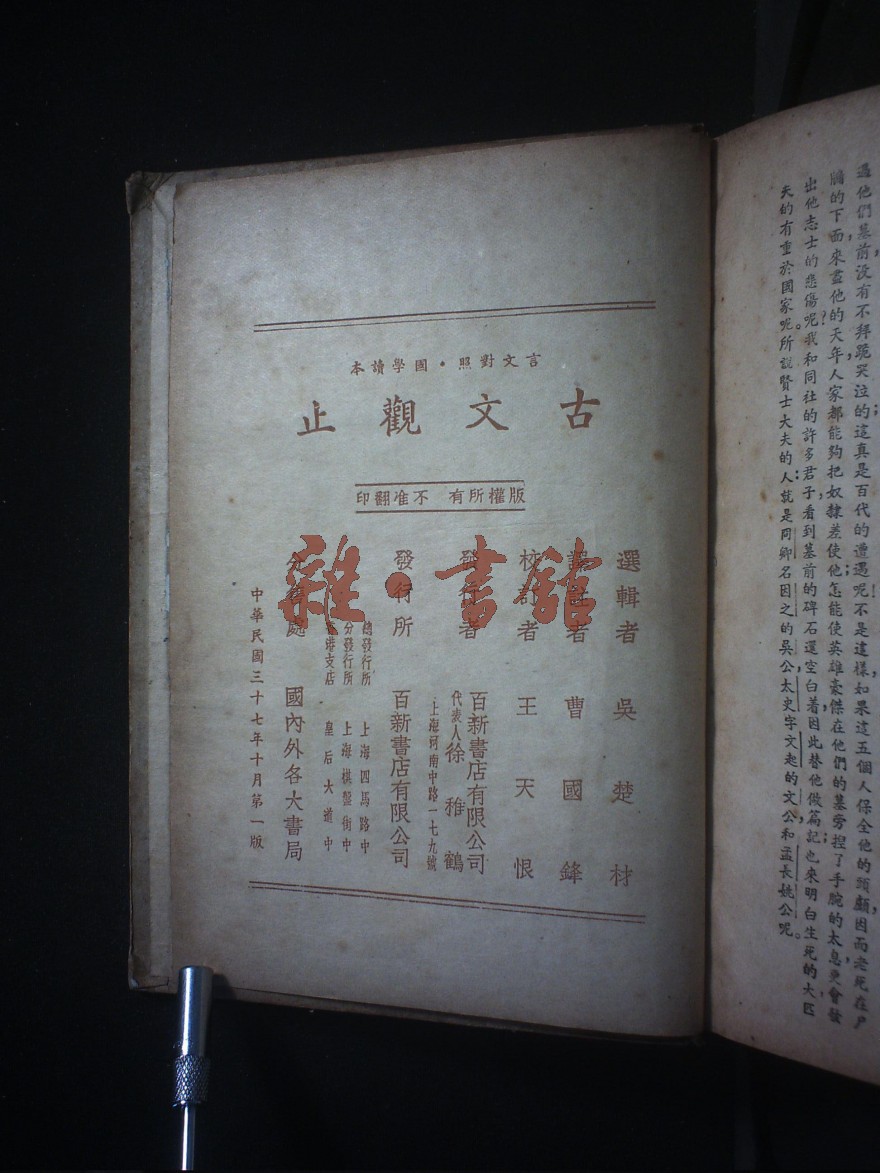 過他們墓前沒有不拜跪哭泣的這真是百代的遭遇呢不是這樣如果這五個人保全他的頭顱因而老死在户
牖的下面來盡他的天年人家都能夠把奴隸差使他怎能使英雄豪傑在他們的墓旁捏了手腕的太息更會發
出他志士的悲傷呢？我和同社的許多君子看到墓前的碑石還空白着因此替他做篇記也來明白生死的大匹
夫的有重於國家呢所說賢士大夫的人就是冏卿名因之的吳公太史字文起的文公和孟長姚公呢。
言文對照・國學讀本
古文觀止
版權所有 不准翻印
選輯者 吳楚材
譯註者 曹國鋒
校訂者 王天恨
發行者 百新書店有限公司
代表人徐稚鶴
上海河南中路一七九號
發行所 百新書店有限公司
總發行所 上海四馬路中
分發行所 上海棋盤街中
港支店 皇后大道中
分售處 國內外各大書局
中華民國三十七年十月第一版
雜・書館